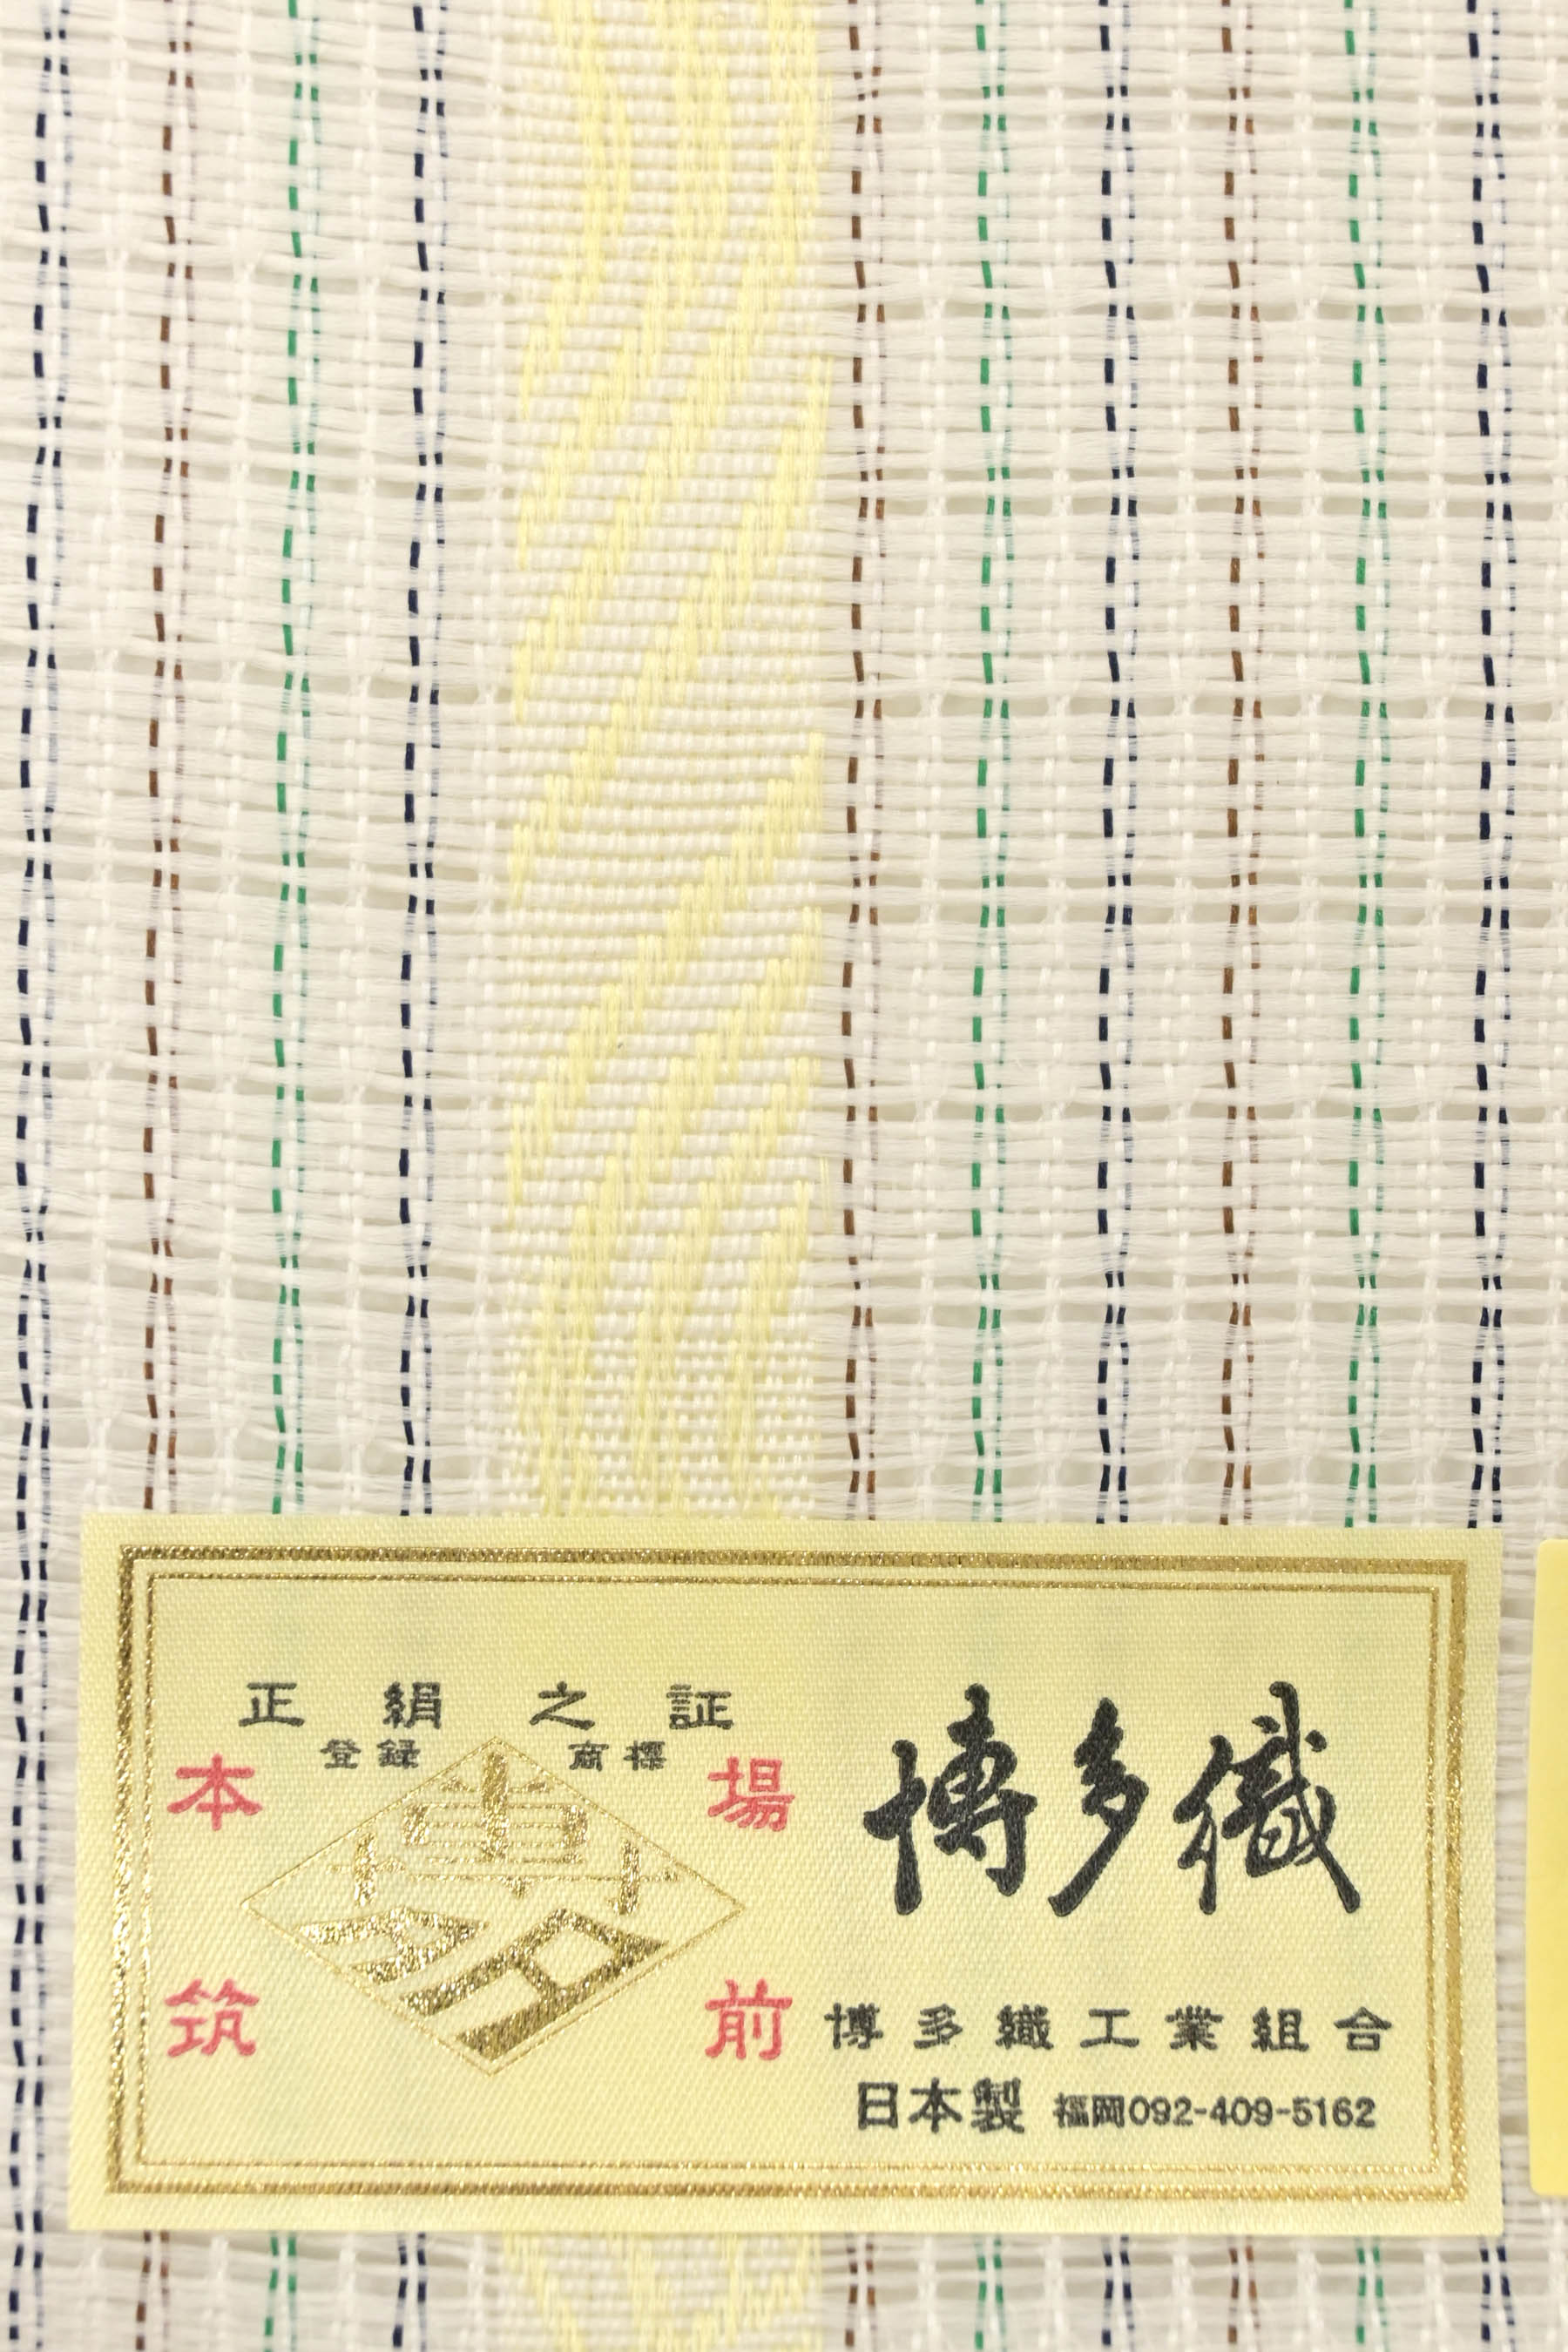 正絹之証
登録商標
本場
筑前
博多
博多織
博多織工業組合
日本製 福岡092-409-5162